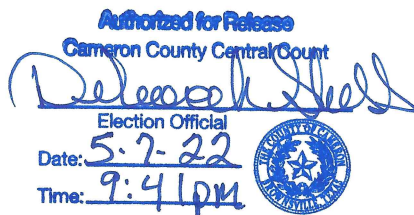 Authorized for Release
Cameron County Central Count
Election Official
Date: 5-7-22
Time: 9:41pm
THE COUNTY OF CAMERON
BROWNSVILLE, TEXAS